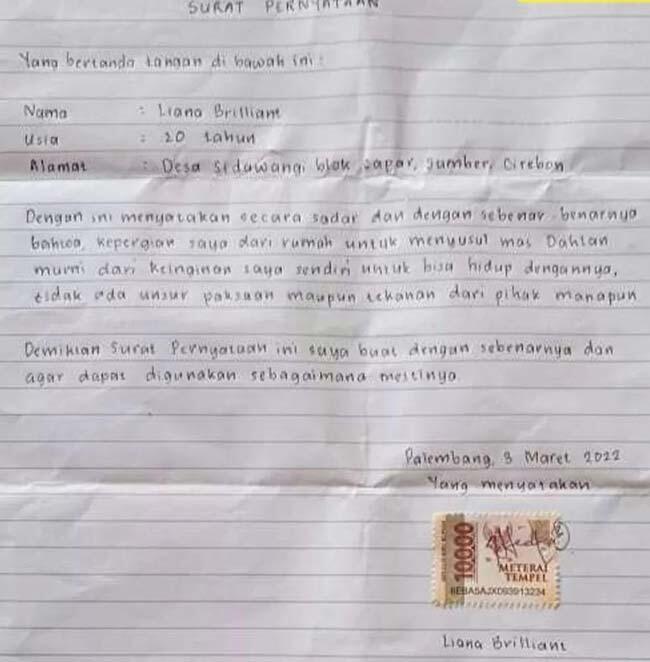 SURAT PERNYATAAN
Yang bertanda tangan di bawah ini :
Nama : Liana Brilliant
Usia : 20 tahun
Alamat : Desa Sidawangi blok sapar, sumber, Cirebon
Dengan ini menyatakan secara sadar dan dengan sebenar-benarnya
bahwa, kepergian saya dari rumah untuk menyusul mas Dahlan
murni dari keinginan saya sendiri untuk bisa hidup dengannya,
tidak ada unsur paksaan maupun tekanan dari pihak manapun
Demikian Surat Pernyataan ini saya buat dengan sebenarnya dan
agar dapat digunakan sebagaimana mestinya
Palembang, 3 Maret 2022
Yang menyatakan
10000
METERAI
TEMPEL
Liana Brilliant